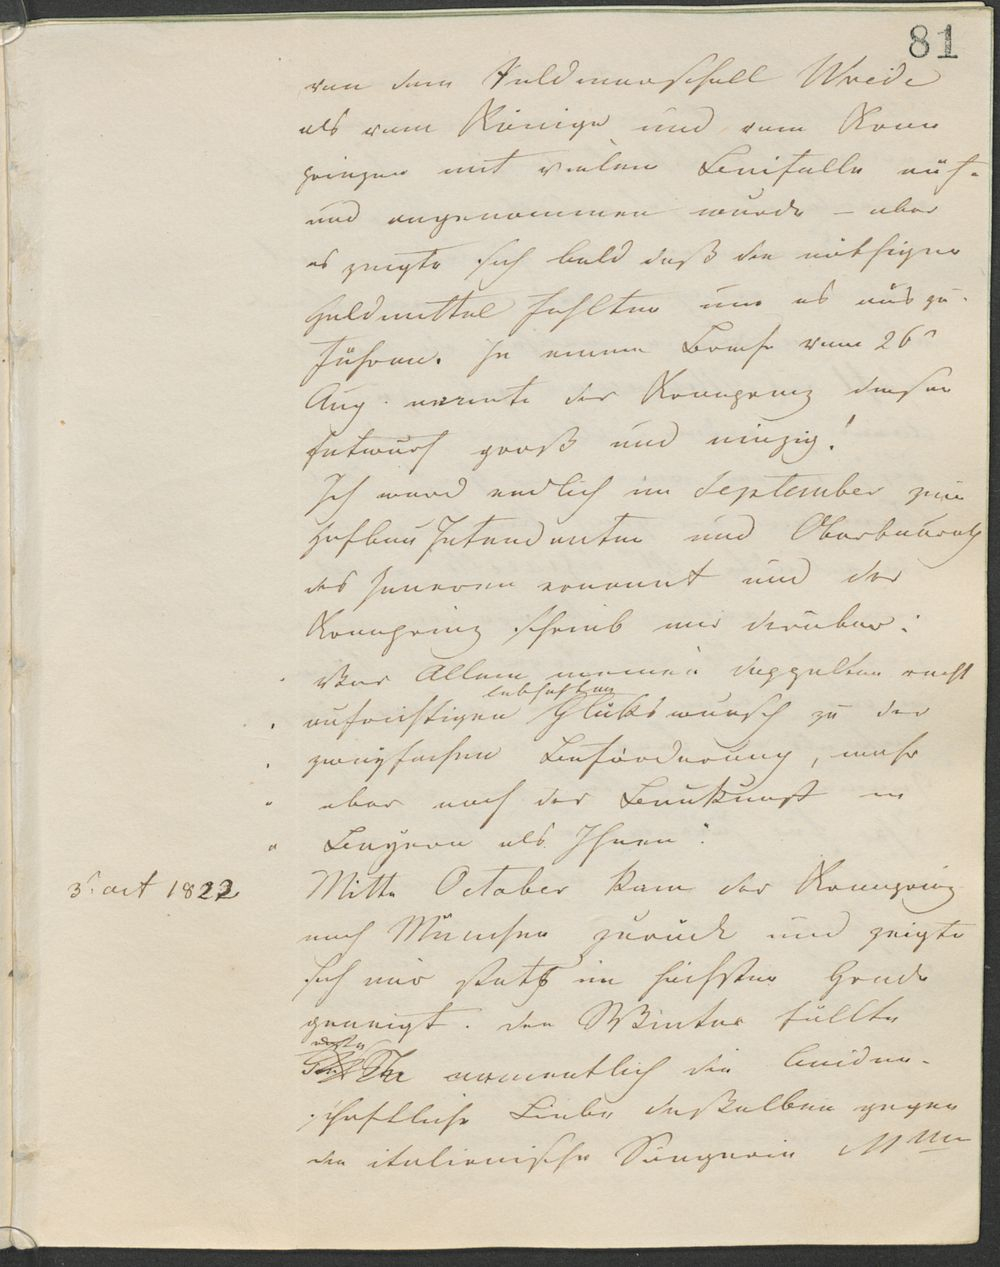 81
von dem Feldmarschall Wrede
als vom Könige und vom Kron
prinzen mit vielem Beifalle auf-
und angenommen wurde – aber
es zeigte sich bald daß die nöthigen
Geldmittel fehlten um es auszu-
führen. In einem Briefe vom 26ⁿ
Aug. nennte der Kronprinz diesen
Entwurf groß und einzig!
Ich ward endlich im September zum
Hofbau Intendanten und Oberbaurath
des Inneren ernannt und der
Kronprinz schrieb mir darüber:
„ Vor Allem meinen doppelten recht
lebhaften
„ aufrichtigen Glückswunsch zu der
„ zweyfachen Beförderung, mehr
„ aber noch der Baukunst in
„ Bayern als Ihnen“.
3ᵗ oct 1822
Mitte October kam der Kronprinz
nach München zurück und zeigte
sich mir stets im höchsten Grade
geneigt. Den Winter füllte
namentlich die leiden-
schaftliche Liebe desselben gegen
die italienische Sängerin Mme